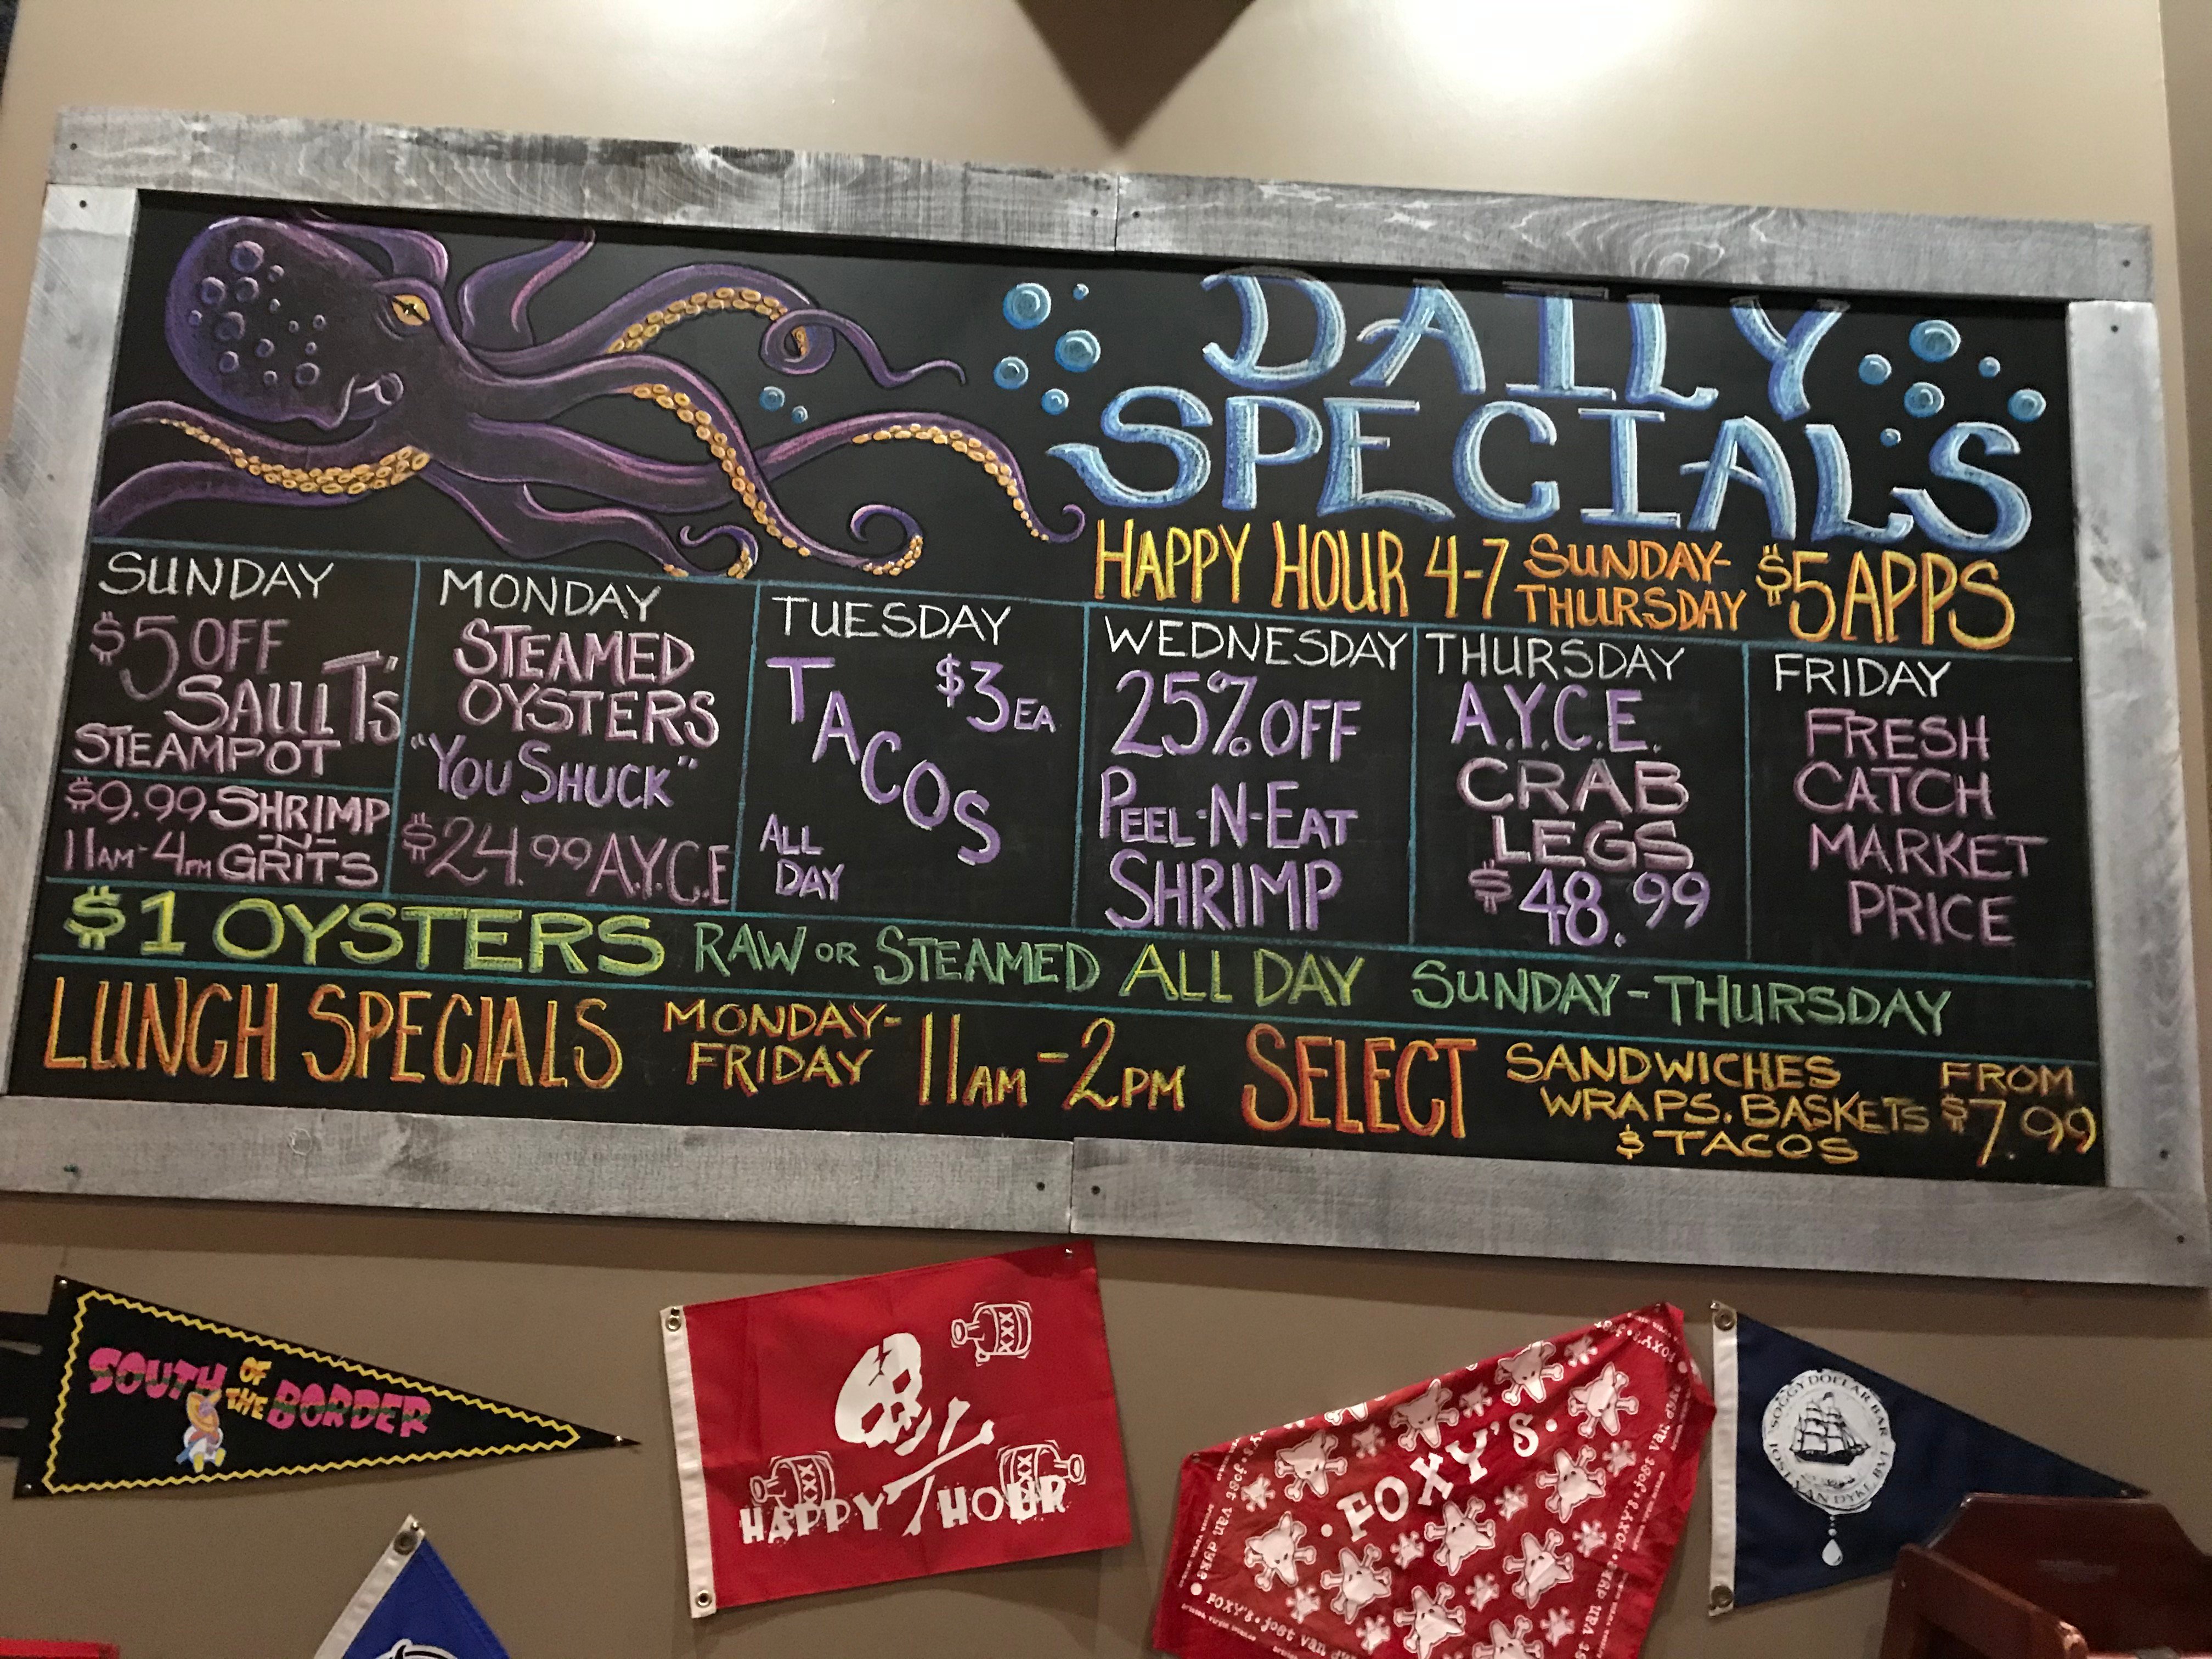 DAILY
SPECIALS
HAPPY HOUR 4-7 SUNDAY-
THURSDAY $5 APPS
SUNDAY
$5 OFF
SAULT'S
STEAMPOT
$9.99 SHRIMP
-N-
11AM-4PM GRITS
MONDAY
STEAMED
OYSTERS
"YOU SHUCK"
$24.99 A.Y.C.E
TUESDAY
TACOS $3 EA
ALL
DAY
WEDNESDAY
25% OFF
PEEL-N-EAT
SHRIMP
THURSDAY
A.Y.C.E.
CRAB
LEGS
$48.99
FRIDAY
FRESH
CATCH
MARKET
PRICE
$1 OYSTERS RAW OR STEAMED ALL DAY SUNDAY-THURSDAY
LUNCH SPECIALS MONDAY-
FRIDAY 11AM-2PM SELECT SANDWICHES
WRAPS, BASKETS
& TACOS
FROM
$7.99
SOUTH OF THE BORDER
XXX
XXX
XXX
HAPPY HOUR
FOXY'S
FOXY'S • jost van dyke
SOGGY DOLLAR BAR
JOST VAN DYKE BVI